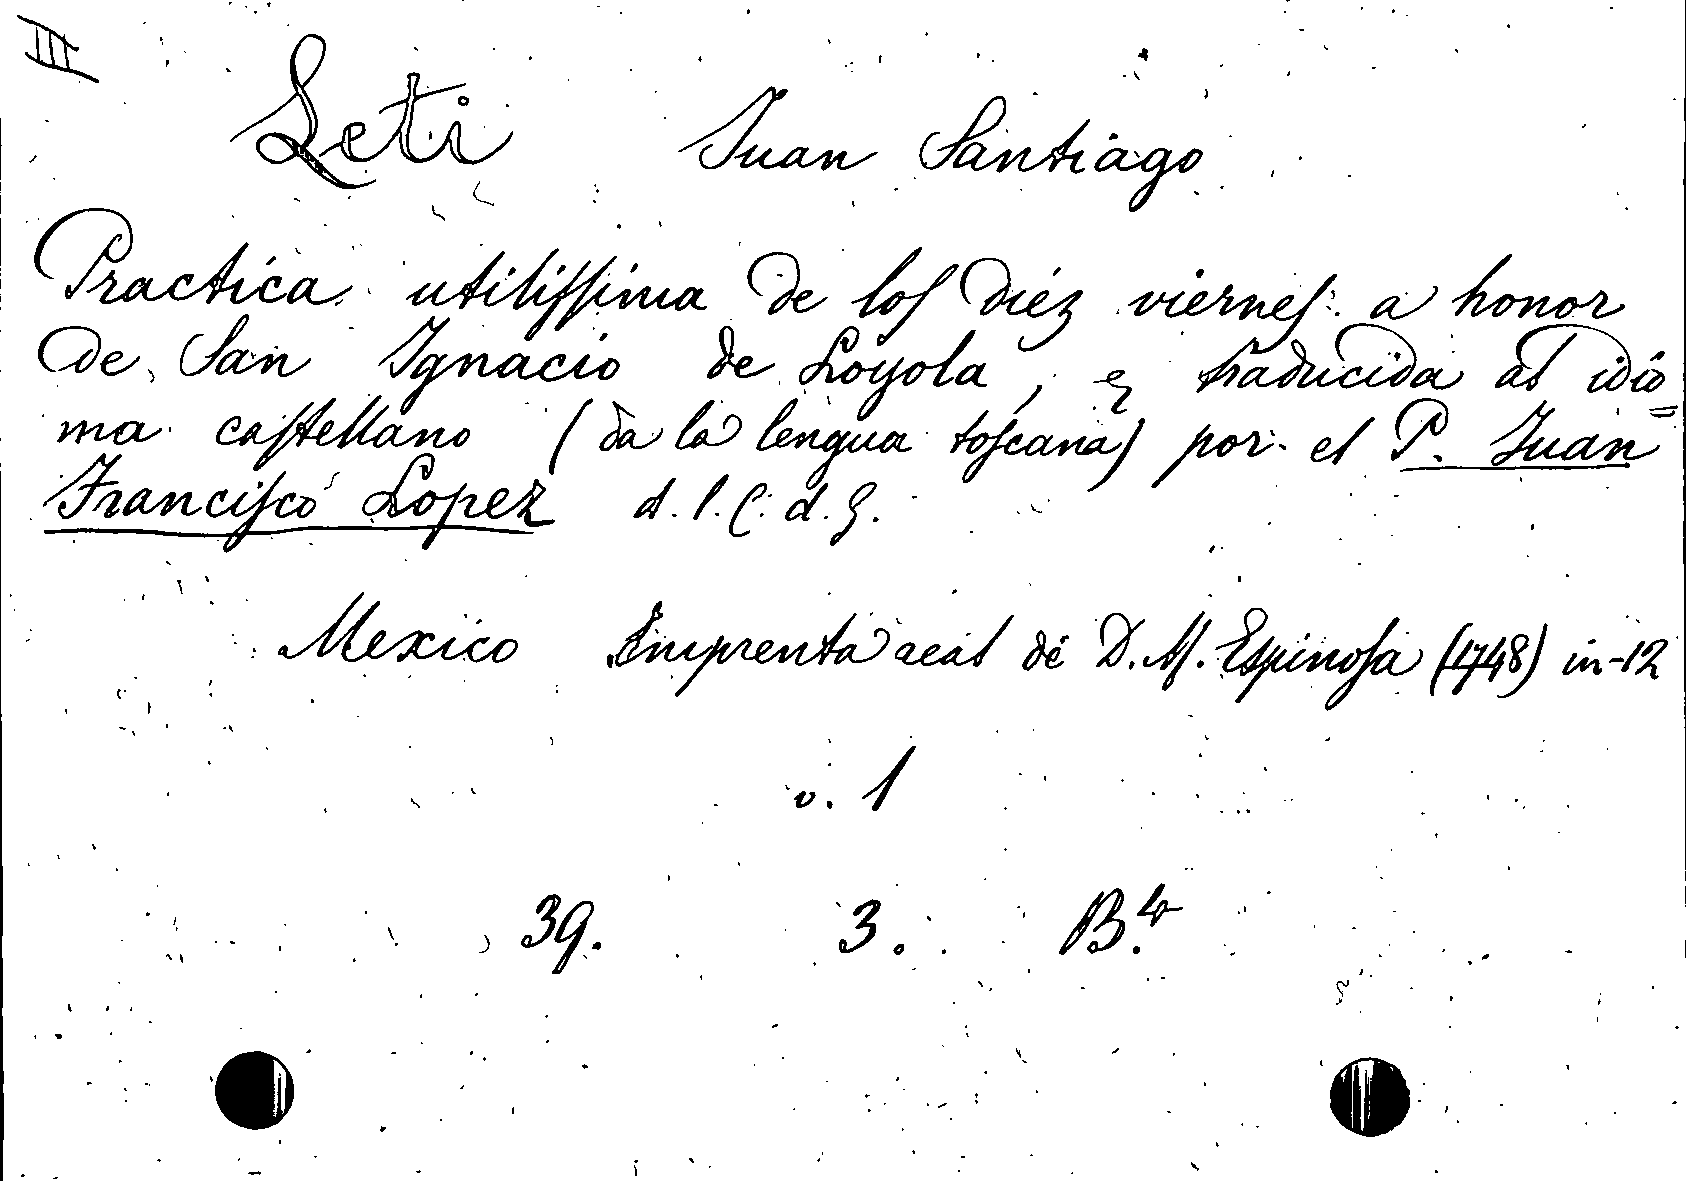 III
Leti Juan Santiago
Practica utiliſſima de loſ diez vierneſ a honor
de San Ignacio de Loyola, e traducida al idio=
ma caſtellano (da la lengua toſcana) por el P. Juan
Franciſco Lopez d. l. C. d. G.
Mexico Emprenta real de D. M. Eſpinoſa (1748) in-12
v. 1
39. 3. B.